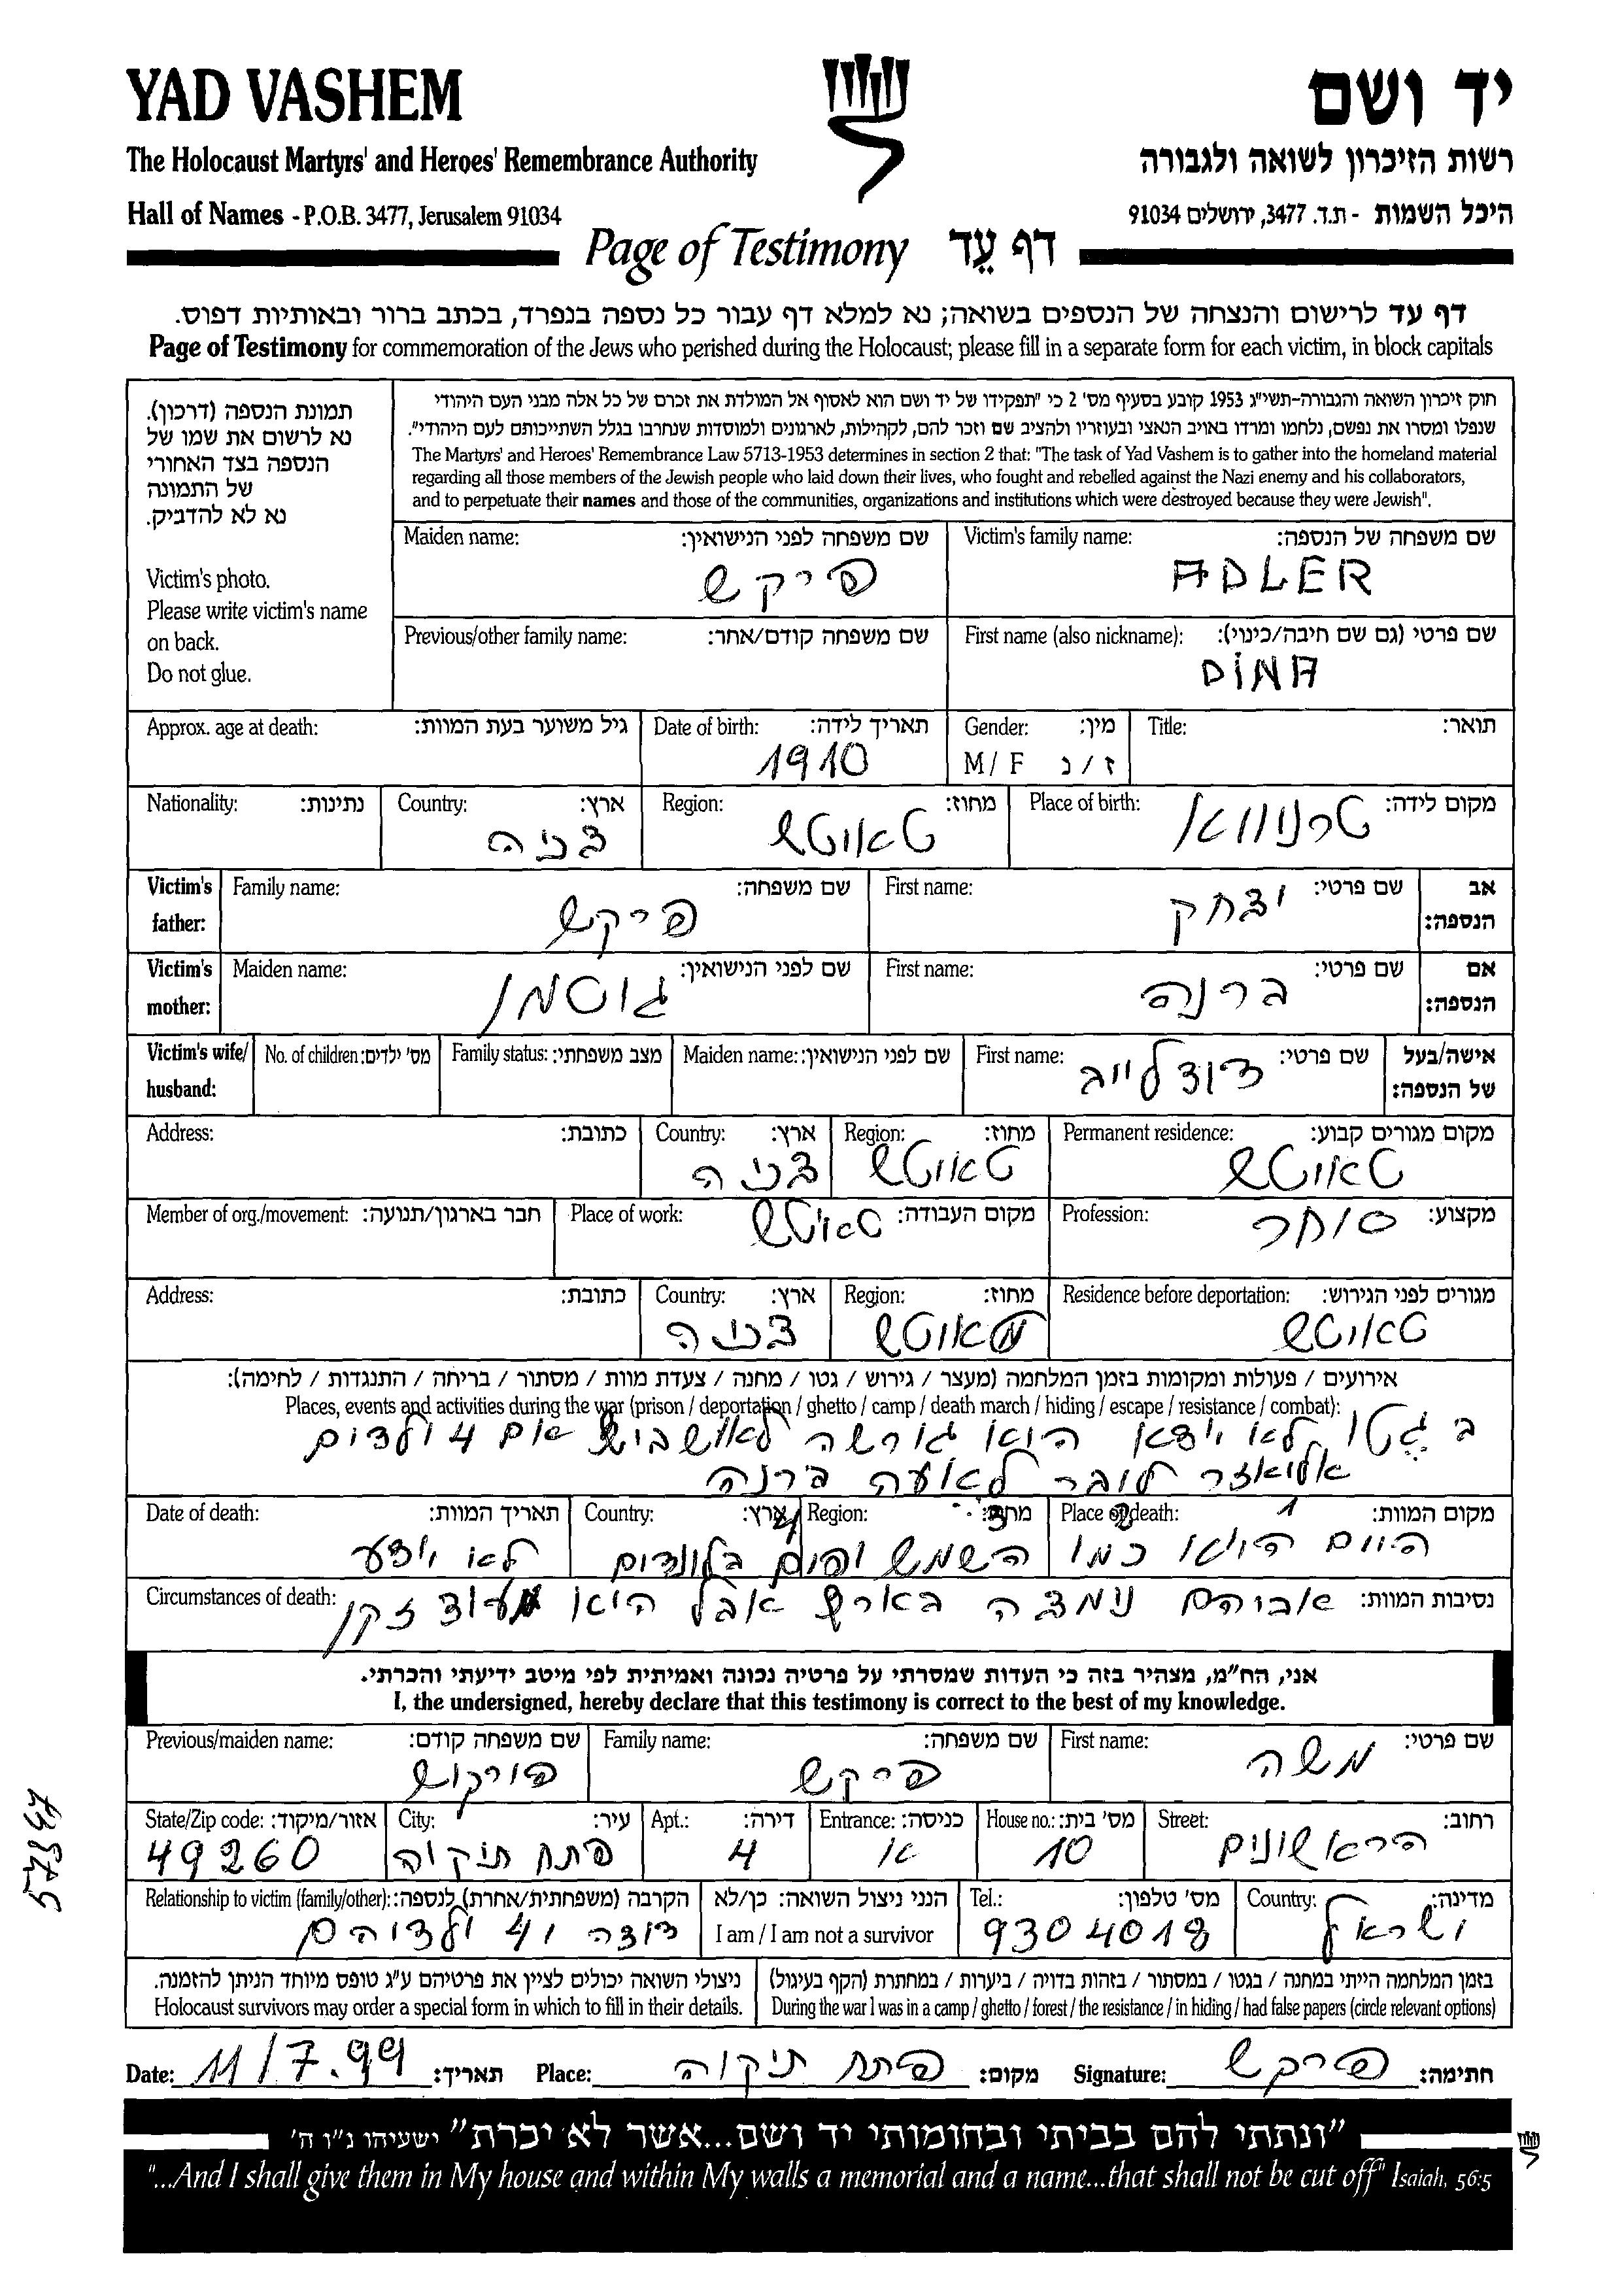 YAD VASHEM
יד ושם
The Holocaust Martyrs' and Heroes' Remembrance Authority
רשות הזיכרון לשואה ולגבורה
Hall of Names - P.O.B. 3477, Jerusalem 91034
היכל השמות - ת.ד. 3477, ירושלים 91034
Page of Testimony דף עֵד
דף עד לרישום והנצחה של הנספים בשואה; נא למלא דף עבור כל נספה בנפרד, בכתב ברור ובאותיות דפוס.
Page of Testimony for commemoration of the Jews who perished during the Holocaust; please fill in a separate form for each victim, in block capitals
תמונת הנספה (דרכון).
נא לרשום את שמו של
הנספה בצד האחורי
של התמונה
נא לא להדביק.
Victim's photo.
Please write victim's name
on back.
Do not glue.
חוק זיכרון השואה והגבורה-תשי"ג 1953 קובע בסעיף מס' 2 כי "תפקידו של יד ושם הוא לאסוף אל המולדת את זכרם של כל אלה מבני העם היהודי
שנפלו ומסרו את נפשם, נלחמו ומרדו באויב הנאצי ובעוזריו ולהציב שם וזכר להם, לקהילות, לארגונים ולמוסדות שנחרבו בגלל השתייכותם לעם היהודי".
The Martyrs' and Heroes' Remembrance Law 5713-1953 determines in section 2 that: "The task of Yad Vashem is to gather into the homeland material
regarding all those members of the Jewish people who laid down their lives, who fought and rebelled against the Nazi enemy and his collaborators,
and to perpetuate their names and those of the communities, organizations and institutions which were destroyed because they were Jewish".
Victim's family name: שם משפחה של הנספה:
ADLER
Maiden name: שם משפחה לפני הנישואין:
פירקש
First name (also nickname): שם פרטי (גם שם חיבה/כינוי):
DINA
Previous/other family name: שם משפחה קודם/אחר:
Title: תואר:
Gender: מין:
M / F ז / נ
Date of birth: תאריך לידה:
1910
Approx. age at death: גיל משוער בעת המוות:
Place of birth: מקום לידה:
טרנווא
Region: מחוז:
טאוטש
Country: ארץ:
Nationality: נתינות:
אב הנספה:
First name: שם פרטי:
יצחק
Victim's father: Family name: שם משפחה:
פירקש
אם הנספה:
First name: שם פרטי:
ברנה
Victim's mother: Maiden name: שם לפני הנישואין:
גוטמן
אישה/בעל של הנספה:
First name: שם פרטי:
דוד לייב
Maiden name: שם לפני הנישואין:
Family status: מצב משפחתי:
No. of children: מס' ילדים:
Victim's wife/ husband:
Permanent residence: מקום מגורים קבוע:
טאוטש
Region: מחוז:
טאוטש
Country: ארץ:
Address: כתובת:
Profession: מקצוע:
סוחר
Place of work: מקום העבודה:
טאוטש
Member of org./movement: חבר בארגון/תנועה:
Residence before deportation: מגורים לפני הגירוש:
טאוטש
Region: מחוז:
טאוטש
Country: ארץ:
Address: כתובת:
אירועים / פעולות ומקומות בזמן המלחמה (מעצר / גירוש / גטו / מחנה / צעדת מוות / מסתור / בריחה / התנגדות / לחימה):
Places, events and activities during the war (prison / deportation / ghetto / camp / death march / hiding / escape / resistance / combat):
ב גטו לאו היאו גורשה 4 ולדים
ברנה
Place of death: מקום המוות:
היום היאו כמו
Region: מחוז:
השמש
Country: ארץ:
Date of death: תאריך המוות:
לאו
Circumstances of death: נסיבות המוות:
אביהם נימצה בארץ אבל היאו זקן
אני, הח"מ, מצהיר בזה כי העדות שמסרתי על פרטיה נכונה ואמיתית לפי מיטב ידיעתי והכרתי.
I, the undersigned, hereby declare that this testimony is correct to the best of my knowledge.
First name: שם פרטי:
משה
Family name: שם משפחה:
פרקש
Previous/maiden name: שם משפחה קודם:
Street: רחוב:
הראשונים
House no.: מס' בית:
10
Entrance: כניסה:
א
Apt.: דירה:
4
City: עיר:
פתח תיקוה
State/Zip code: אזור/מיקוד:
49260
Country: מדינה:
ישראל
Tel.: מס' טלפון:
9304018
הנני ניצול השואה: כן/לא
I am / I am not a survivor
Relationship to victim (family/other): הקרבה (משפחתית/אחרת) לנספה:
דודה ו 4 ולדיהם
בזמן המלחמה הייתי במחנה / בגטו / במסתור / בזהות בדויה / ביערות / במחתרת (הקף בעיגול)
During the war I was in a camp / ghetto / forest / the resistance / in hiding / had false papers (circle relevant options)
ניצולי השואה יכולים לציין את פרטיהם ע"ג טופס מיוחד הניתן להזמנה.
Holocaust survivors may order a special form in which to fill in their details.
Date: 11/7.99 תאריך: Place: פתח תיקוה מקום: Signature: פרקש חתימה:
"ונתתי להם בביתי ובחומותי יד ושם...אשר לא יכרת" ישעיהו נ"ו ה'
"...And I shall give them in My house and within My walls a memorial and a name...that shall not be cut off" Isaiah, 56:5